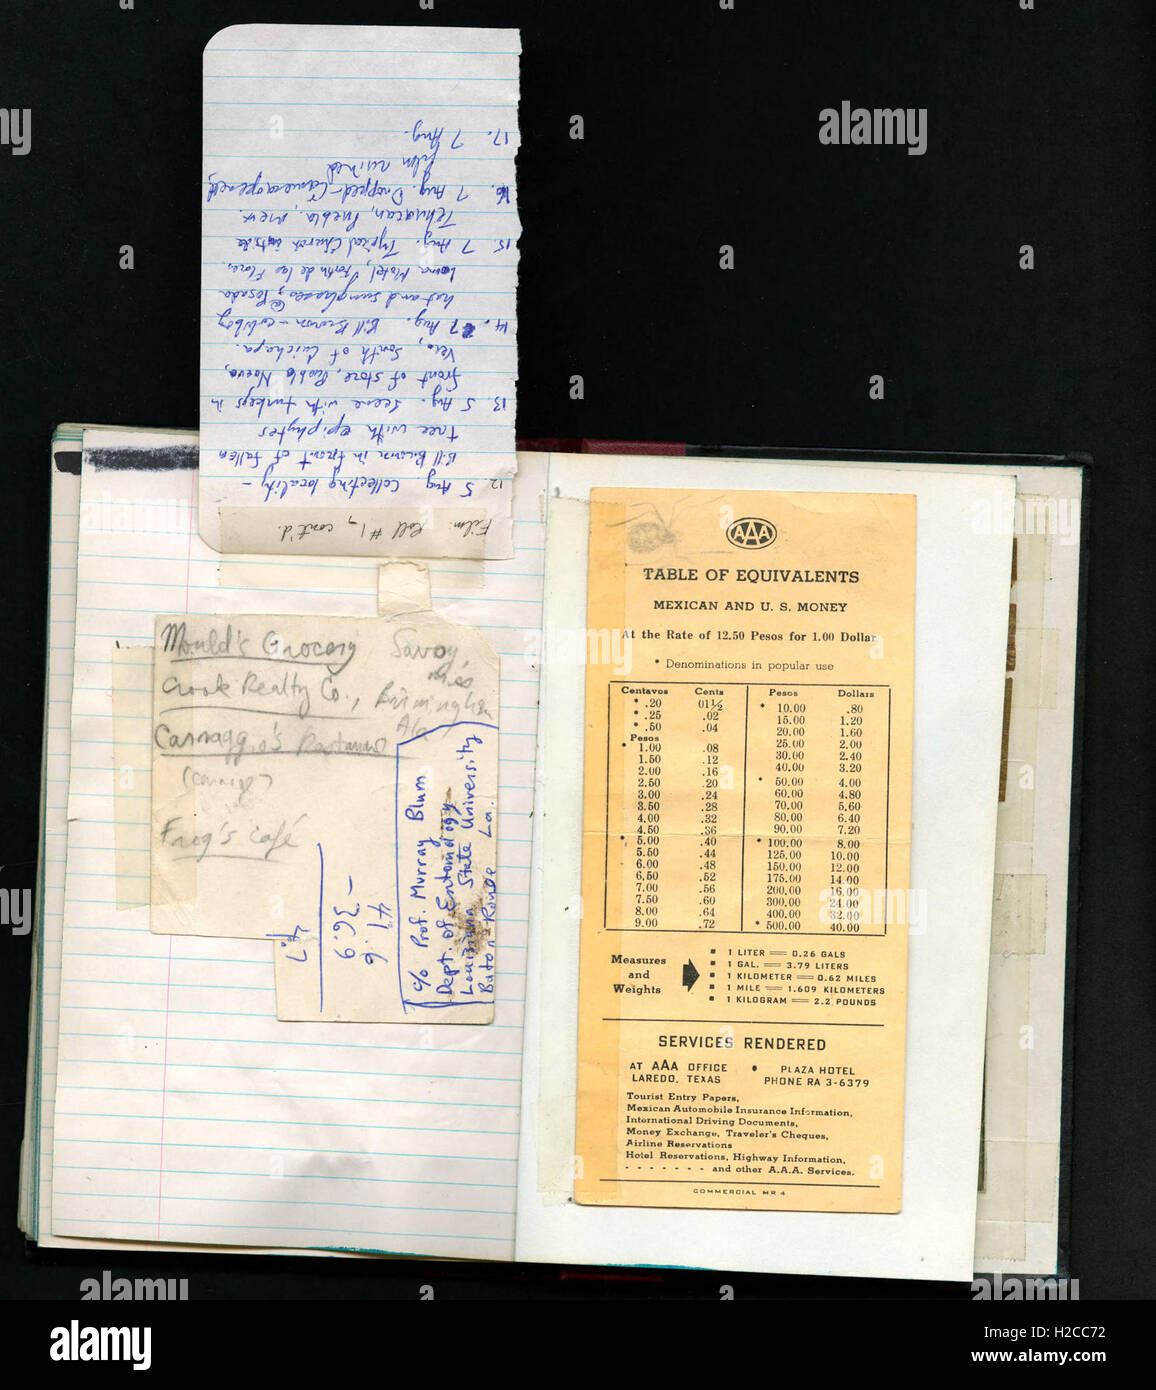 Film Roll #1, cont'd.
12. 5 Aug. Collecting locality -
Bill Brown in front of fallen
tree with epiphytes
13. 5 Aug. Scene with turkeys in
front of store, Pueblo Nuevo,
Vera, South of Cuichapa.
14. 7 Aug. Bill Brown - cowboy
hat and sunglasses, @ Posada
Loma Motel, Fortin de las Flores.
15. 7 Aug. Typical Church outside
Tehuacan, Puebla, Mex.
16. 7 Aug. Dropped - Camera opened
film ruined
17. 7 Aug.
Mould's Grocery Savoy,
Miss
Crook Realty Co., Birmingham
Ala
Carnaggio's
Frog's café
41.6
- 36.9
4.7
c/o Prof. Murray Blum
Dept. of Entomology
Louisiana State University
Baton Rouge La.
AAA
TABLE OF EQUIVALENTS
MEXICAN AND U. S. MONEY
At the Rate of 12.50 Pesos for 1.00 Dollar
* Denominations in popular use
Centavos Cents Pesos Dollars
* .20 01½ * 10.00 .80
* .25 .02 15.00 1.20
* .50 .04 20.00 1.60
Pesos 25.00 2.00
* 1.00 .08 30.00 2.40
1.50 .12 40.00 3.20
2.00 .16 * 50.00 4.00
2.50 .20 60.00 4.80
3.00 .24 70.00 5.60
3.50 .28 80.00 6.40
4.00 .32 90.00 7.20
4.50 .36 * 100.00 8.00
* 5.00 .40 125.00 10.00
5.50 .44 150.00 12.00
6.00 .48 175.00 14.00
6.50 .52 200.00 16.00
7.00 .56 300.00 24.00
7.50 .60 400.00 32.00
8.00 .64 * 500.00 40.00
9.00 .72
Measures and Weights
1 LITER = 0.26 GALS
1 GAL. = 3.79 LITERS
1 KILOMETER = 0.62 MILES
1 MILE = 1.609 KILOMETERS
1 KILOGRAM = 2.2 POUNDS
SERVICES RENDERED
AT AAA OFFICE • PLAZA HOTEL
LAREDO, TEXAS PHONE RA 3-6379
Tourist Entry Papers,
Mexican Automobile Insurance Information,
International Driving Documents,
Money Exchange, Traveler's Cheques,
Airline Reservations
Hotel Reservations, Highway Information,
- - - - - - - and other A.A.A. Services.
COMMERCIAL MR 4
alamy
alamy
alamy
alamy
alamy
Image ID: H2CC72
www.alamy.com